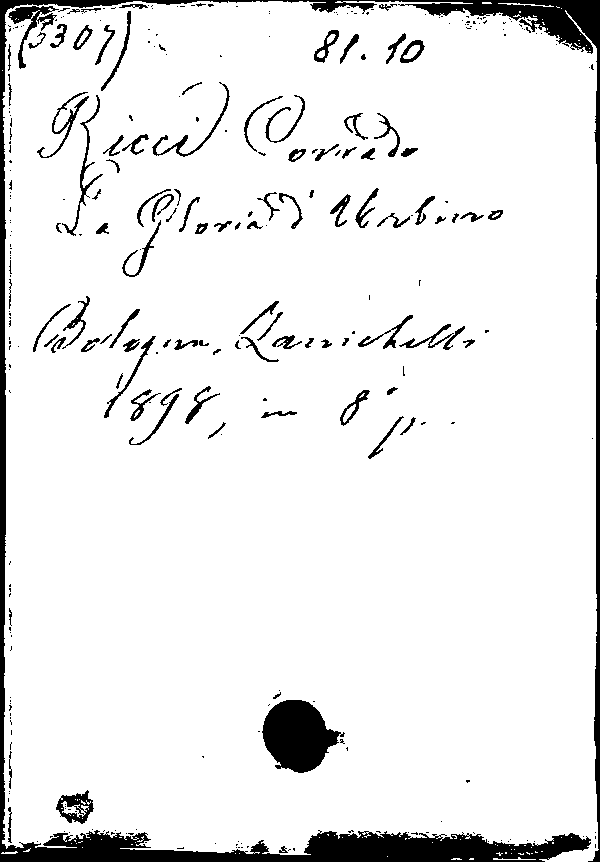 (3307) 81.10
Ricci Corrado
La Gloria d'Urbino
Bologna, Zanichelli
1898, in 8° p.